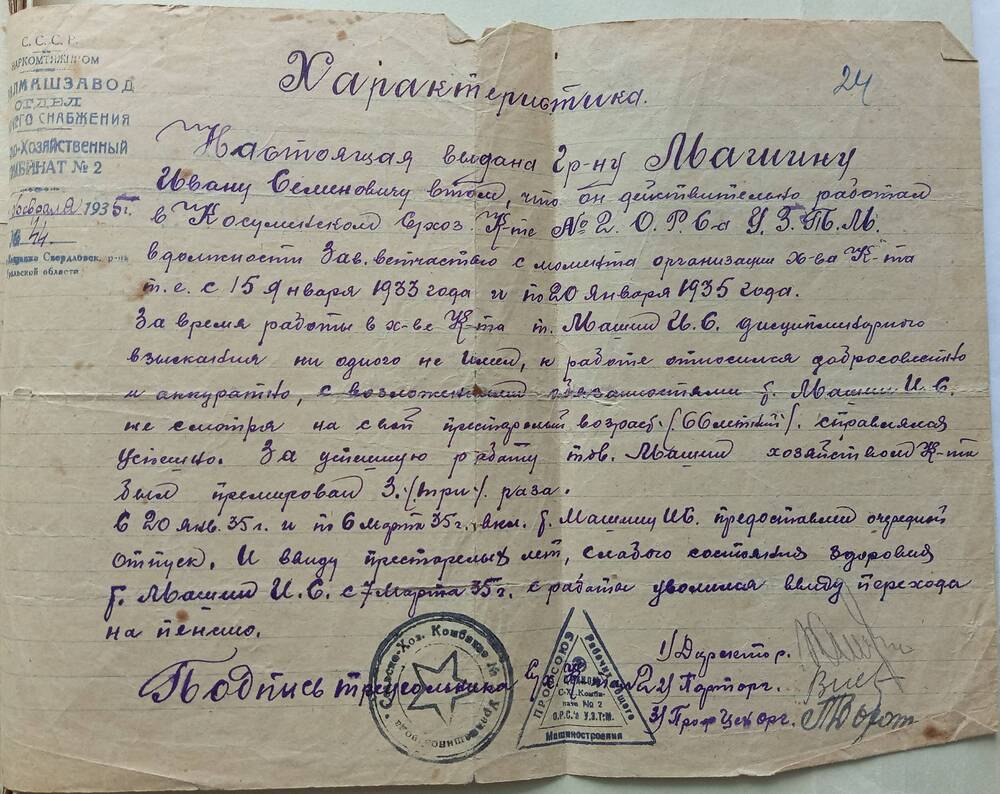 С. С. С. Р.
НАРКОМТЯЖПРОМ
АЛМАШЗАВОД
ОТДЕЛ
ЧЕГО СНАБЖЕНИЯ
О-ХОЗЯЙСТВЕННЫЙ
МБИНАТ № 2
февраля 1935 г.
№ 44
Свердловск. р-на
альской области
24
Характеристика.
Настоящая выдана Гр-ну Машину
Ивану Семеновичу в том, что он действительно работал
в Косулинском Сх-хоз. К-те № 2. О. Р. С-а У. З. Т. М.
в должности Зав. ветчастью с момента организации х-ва К-та
т. е. с 15 января 1933 года и по 20 января 1935 года.
За время работы в х-ве К-та т. Машин И. С. дисциплинарного
взыскания ни одного не имел, к работе относился добросовестно
и аккуратно, с возложенными обязанностями т. Машин И. С.
не смотря на свой престарелый возраст /66 летний/. справлялся
успешно. За успешную работу тов. Машин хозяйством К-та
был премирован 3. /три/. раза.
С 20 янв. 35 г. и по 6 марта 35 г. вкл. т. Машину И.С. предоставлен очередной
отпуск. И ввиду престарелых лет, слабого состояния здоровия
т. Машин И. С. с 7 марта 35 г. с работы уволился ввиду перехода
на пенсию.
Подпись треугольника
1) Директор.
2) Парторг.
3) Проф Цехорг.
Сельско-Хоз. Комбинат №
Уралмашинзавода
ПРОФСОЮЗ
Рабочих Общего
Машиностроения
С-Х. Комби-
ната № 2
О.Р.С.'а У.З.Т.М.